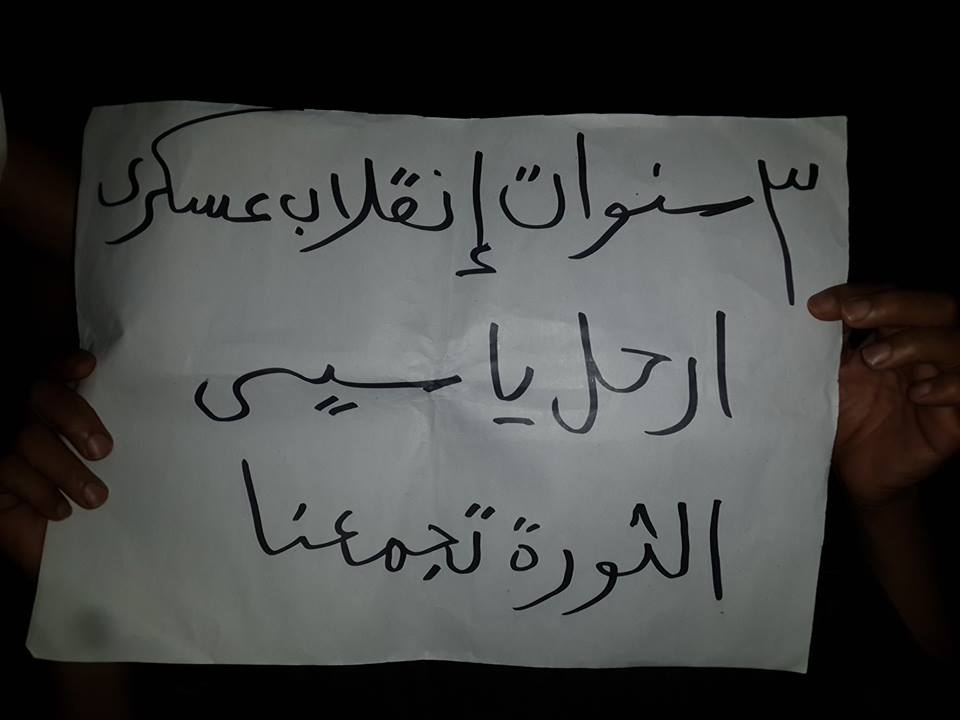 ٣ سنوات إنقلاب عسكرى
ارحل يا سيسى
الثورة تجمعنا